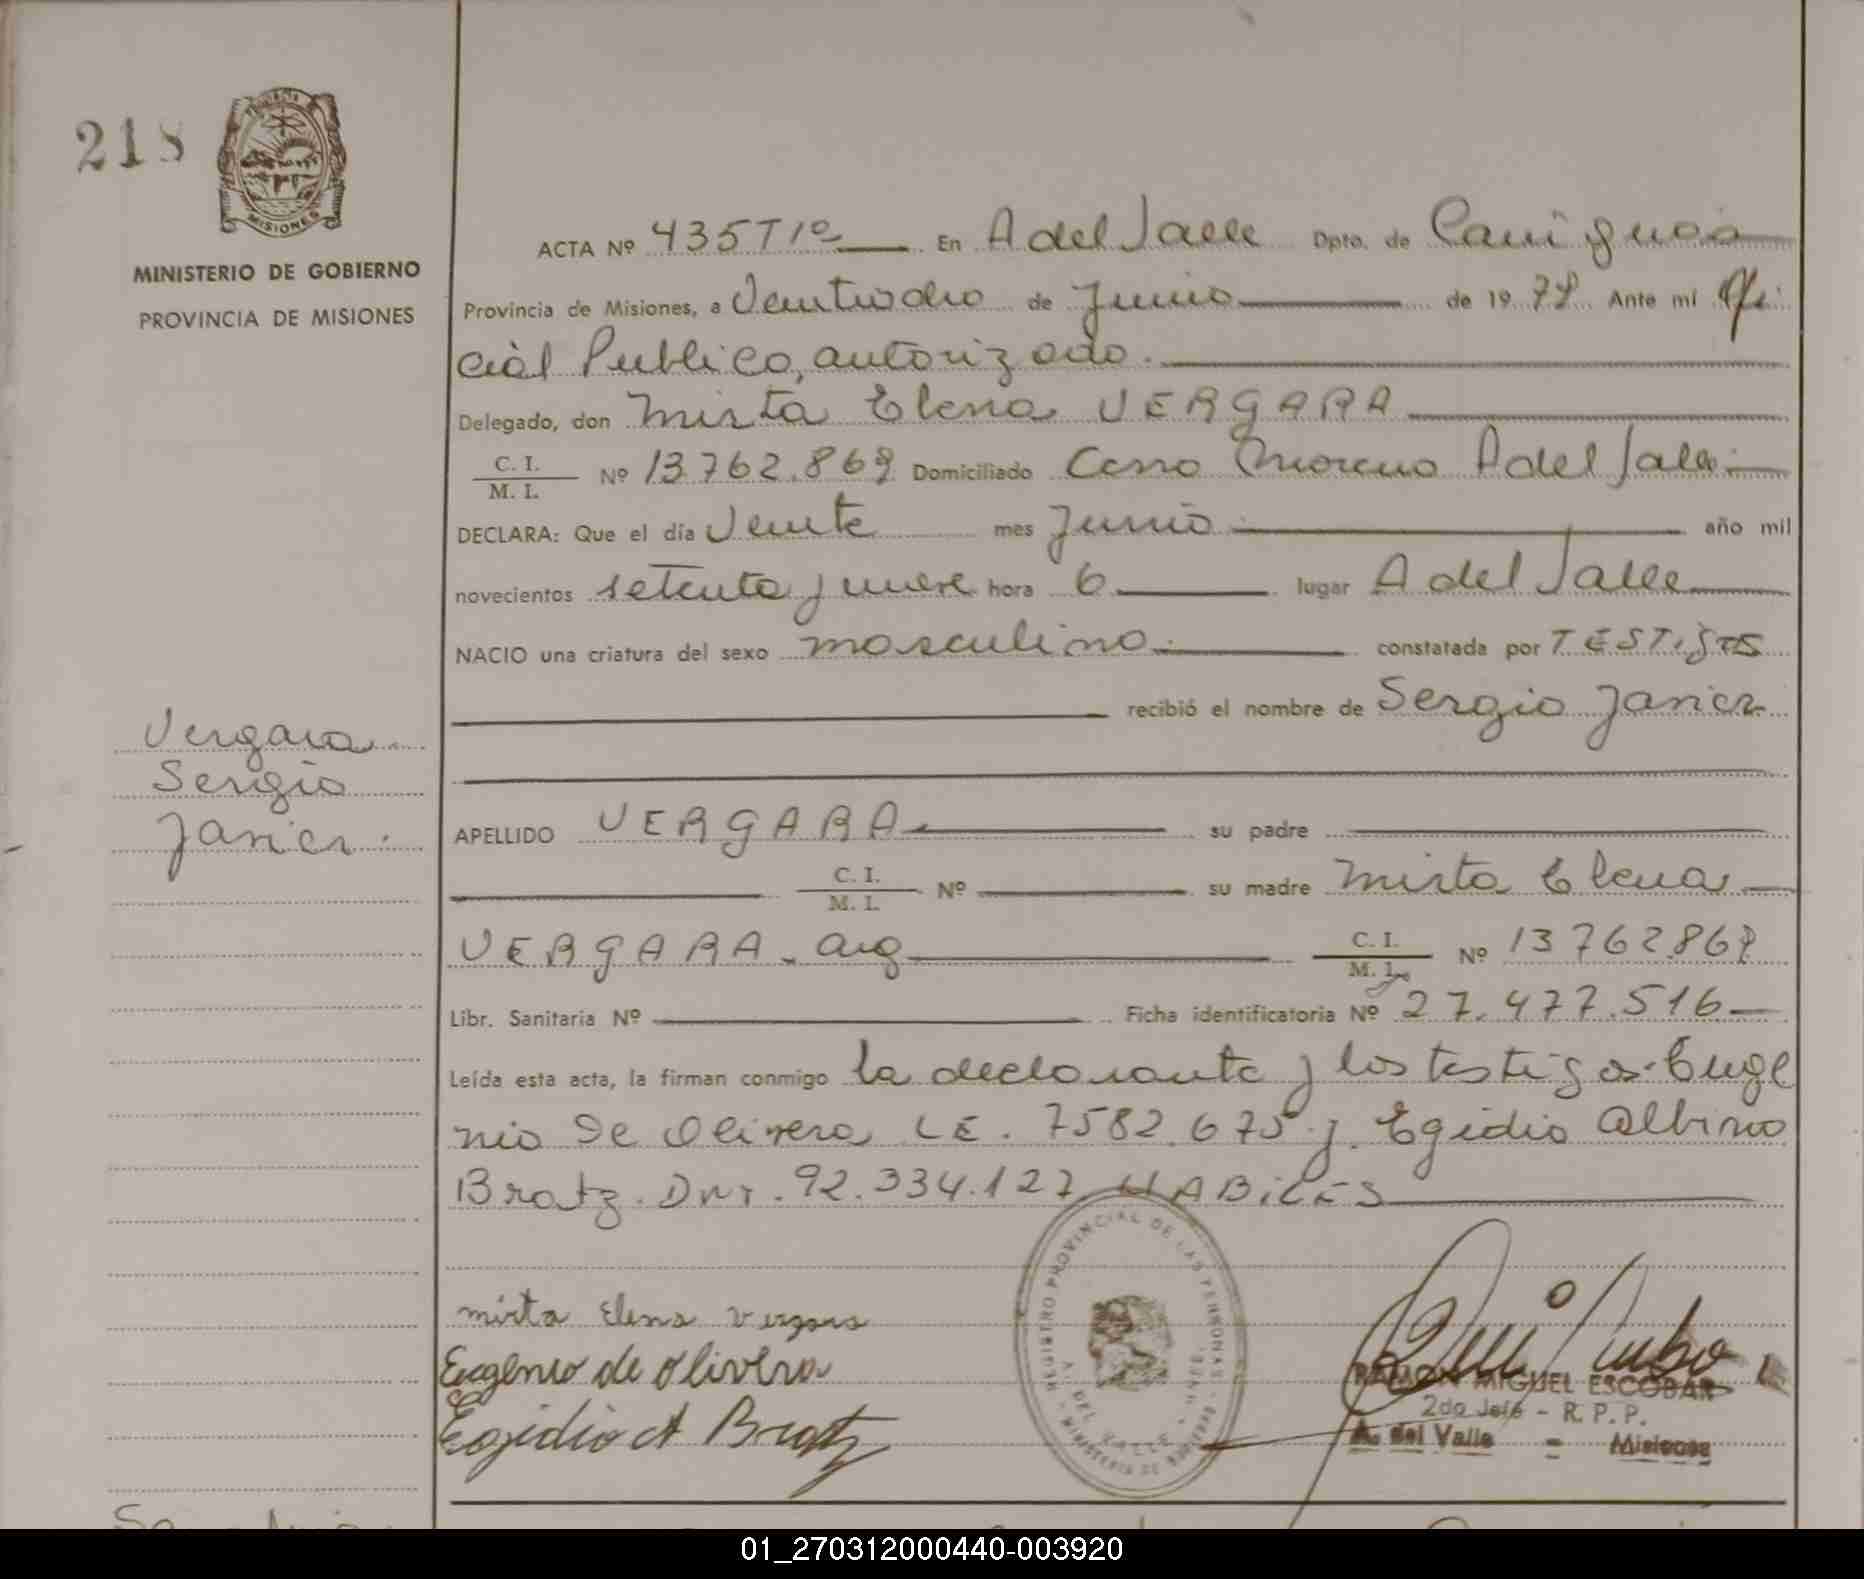 218
MISIONES
MINISTERIO DE GOBIERNO
PROVINCIA DE MISIONES
ACTA Nº 435 T 1º En A del Valle Dpto. de Cainguas
Provincia de Misiones, a Veintiocho de Junio de 1979 Ante mí Ofi
cial Publico, autorizado.
Delegado, don Mirta Elena VERGARA
C. I. / M. I. Nº 13.762.869 Domiciliado Cerro Moreno A del Valle
DECLARA: Que el día Veinte mes Junio año mil
novecientos setenta y nueve hora 6 lugar A del Valle
NACIO una criatura del sexo masculino. constatada por TESTIGOS
recibió el nombre de Sergio Javier
Vergara
Sergio
Javier.
APELLIDO VERGARA su padre
C. I. / M. I. Nº su madre Mirta Elena
VERGARA - arg C. I. / M. I. Nº 13762869
Libr. Sanitaria Nº Ficha identificatoria Nº 27.477.516
Leída esta acta, la firman conmigo la declarante y los testigos. Euge
nio De Olivera LE. 7582.675 y. Egidio Albino
Bratz. DNI. 92.334.127 HABILES
mirta Elena Vergara
Eugenio de olivera
Egidio A Bratz
REGISTRO PROVINCIAL DE LAS PERSONAS - MINISTERIO DE GOBIERNO
A. DEL VALLE
RAMON MIGUEL ESCOBAR
2do Jefe - R. P. P.
A. del Valle = Misiones
01_270312000440-003920